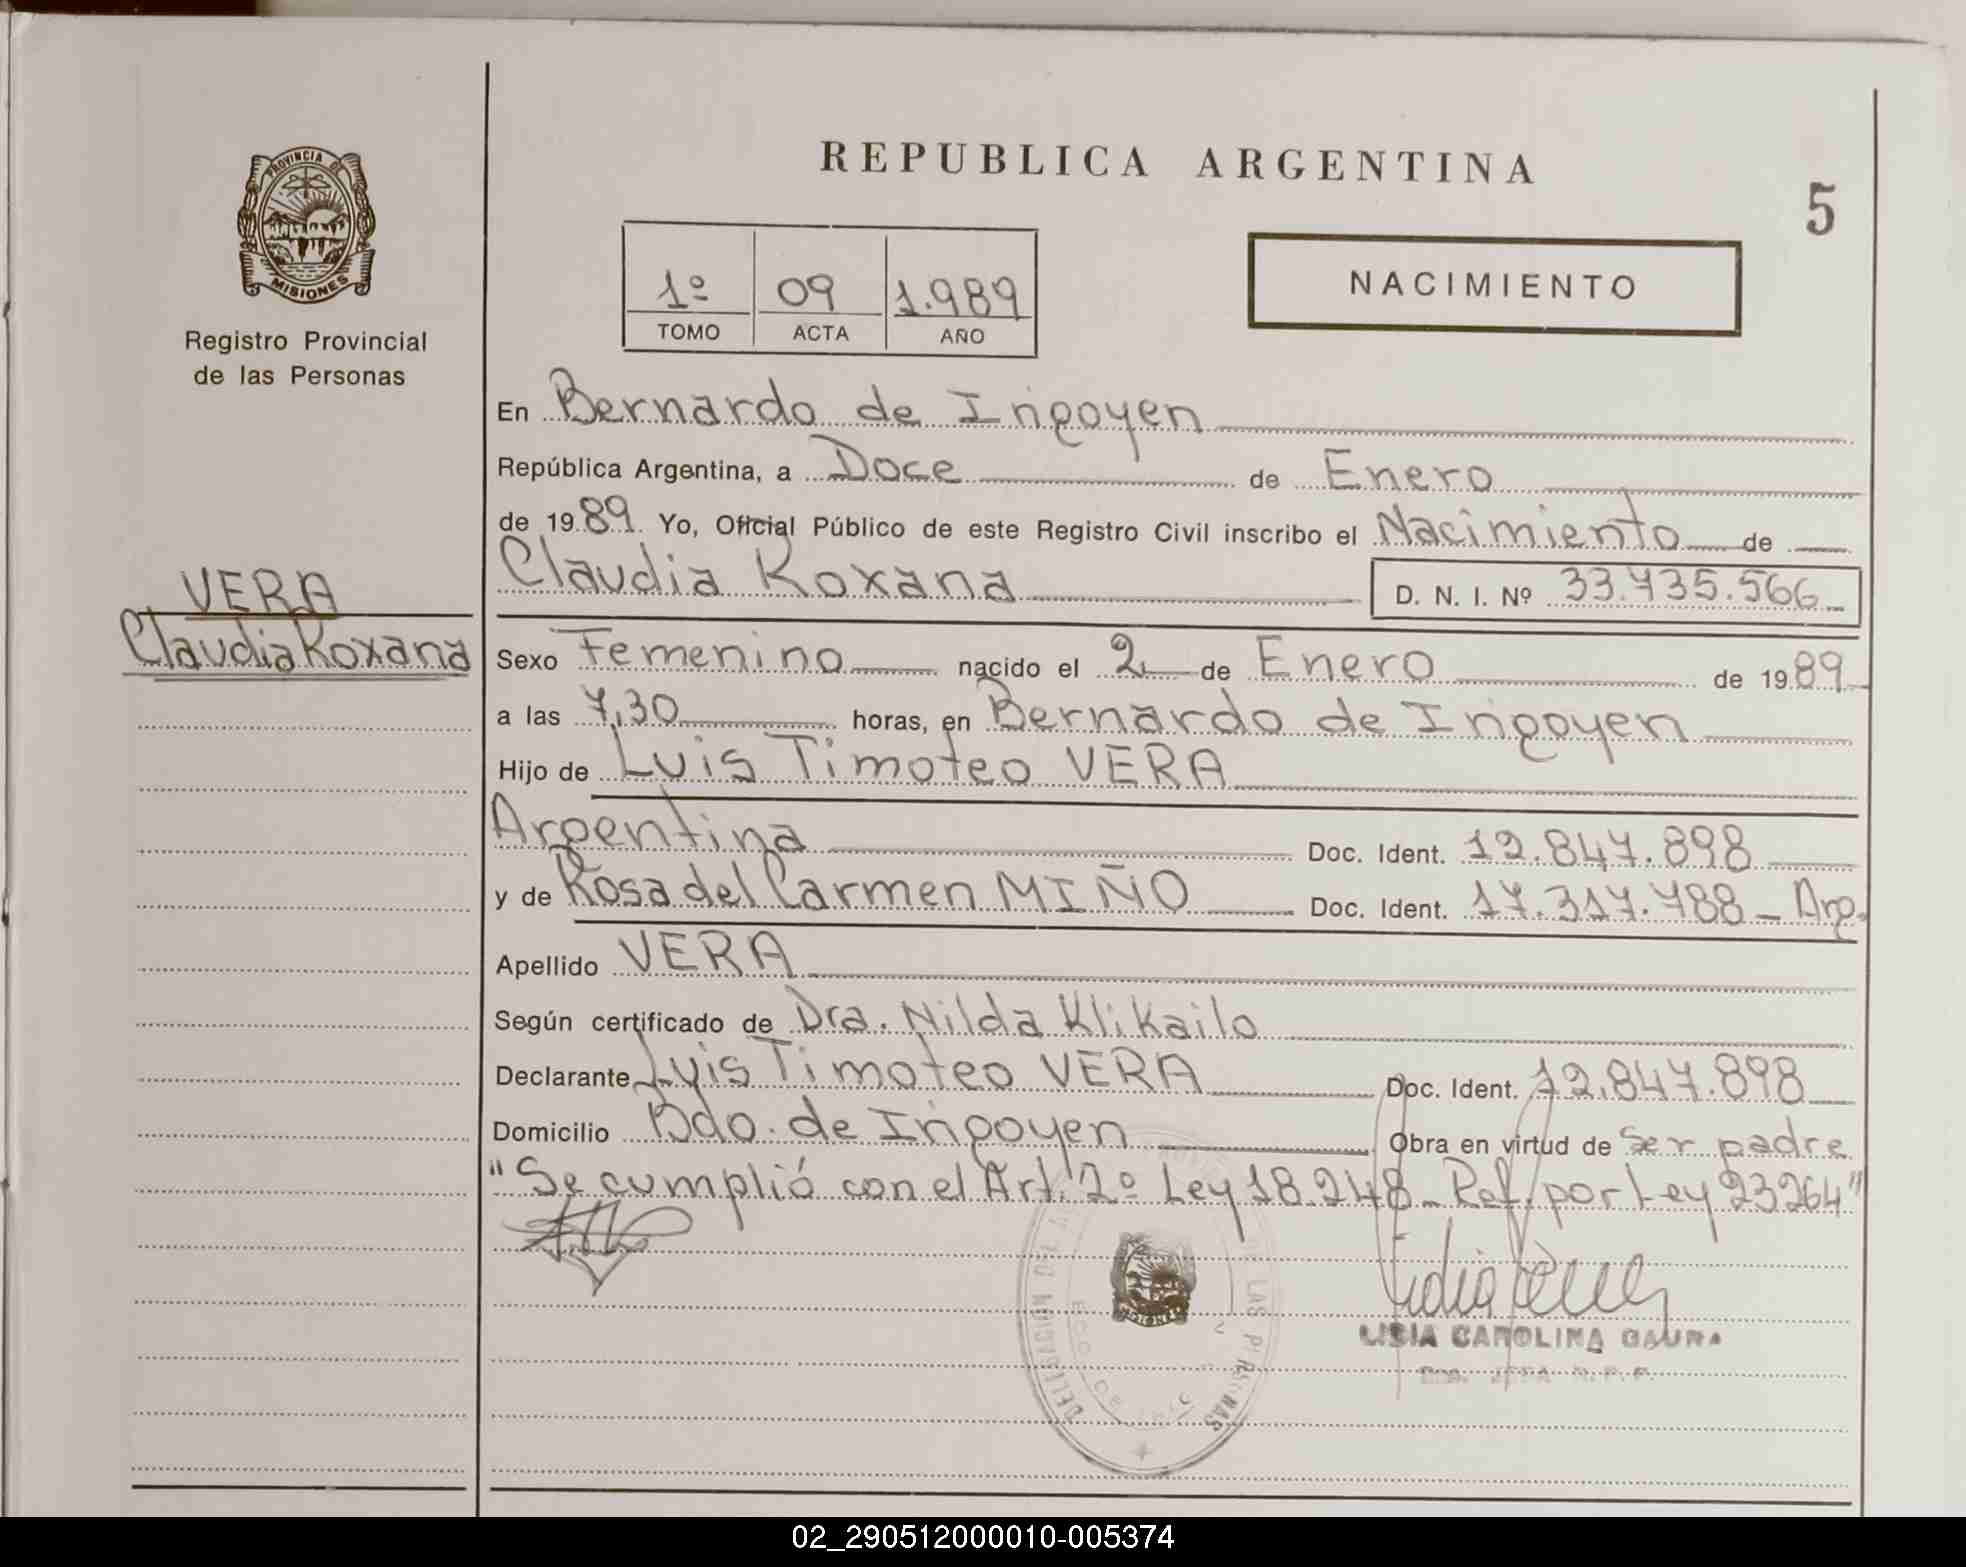 REPUBLICA ARGENTINA
5
PROVINCIA DE
MISIONES
Registro Provincial
de las Personas
1º 09 1.989
TOMO ACTA AÑO
NACIMIENTO
En Bernardo de Irigoyen
República Argentina, a Doce de Enero
de 1989 Yo, Oficial Público de este Registro Civil inscribo el Nacimiento de
Claudia Roxana D. N. I. Nº 33.735.566
VERA
Claudia Roxana
Sexo Femenino nacido el 2 de Enero de 1989
a las 7,30 horas, en Bernardo de Irigoyen
Hijo de Luis Timoteo VERA
Argentina Doc. Ident. 12.847.898
y de Rosa del Carmen MIÑO Doc. Ident. 17.317.788 - Arg.
Apellido VERA
Según certificado de Dra. Nilda Klikailo
Declarante Luis Timoteo VERA Doc. Ident. 12.847.898
Domicilio Bdo. de Irigoyen Obra en virtud de ser padre
"Se cumplió con el Art. 2º Ley 18.248 - Ref. por Ley 23264"
MISIONES
DELEGACION DE LAS PERSONAS
CAROLINA
02_290512000010-005374